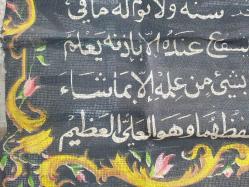 سنة ولا نوم له ما في
يشفع عنده إلا بإذنه يعلم
بشيء من علمه إلا بما شاء
حفظهما وهو العلي العظيم